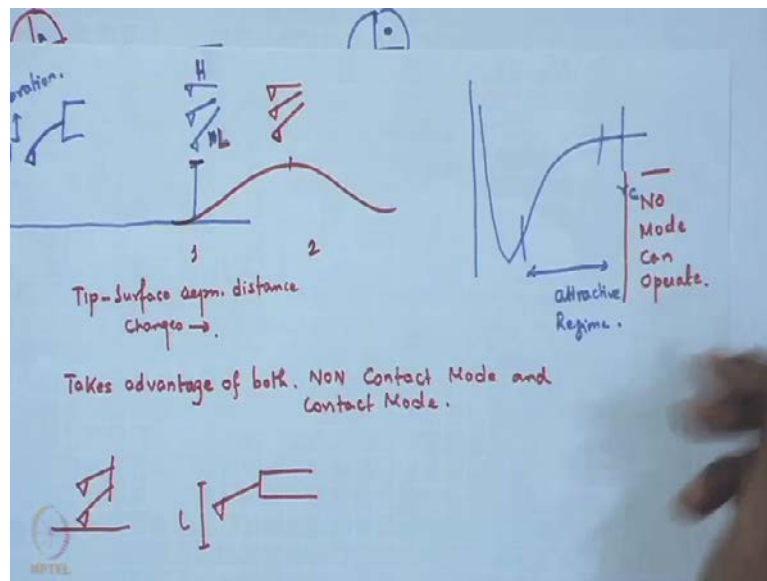 H
NL
1 2
Tip-Surface sepn. distance
changes →.
rc
No
Mode
Can
Operate.
attractive
Regime.
Takes advantage of both. NON Contact Mode and
Contact Mode.
L
NPTEL